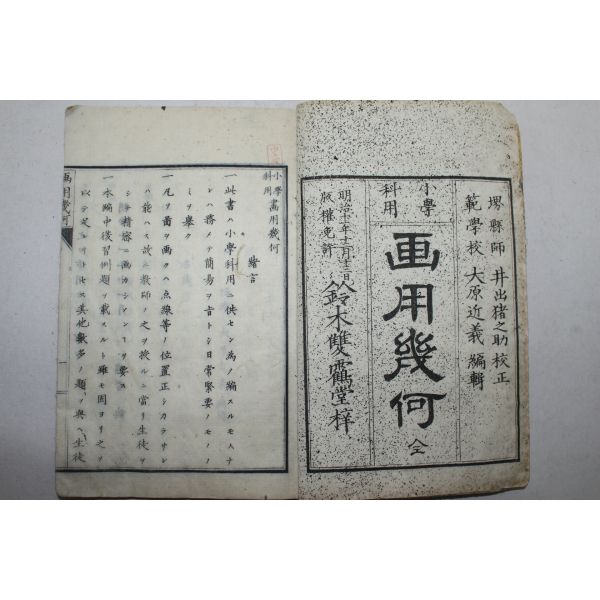 堺縣師範學校
井出猪之助校正
大原近義編輯
小學科用
画用幾何 全
明治十年十二月十二日
版權免許
鈴木雙鸞堂梓
小學科用畫用幾何
緒言
一此書ハ小學科用ニ供セン為ノ編スルモノナ
レハ務メテ簡易ヲ旨トシ日常緊要ノモノノ
ミヲ擧ク
一凡ソ圖ヲ画クハ点線等ノ位置正シカラサレ
ハ能ハス故ニ教師ノ之ヲ授ルニ當リ生徒ヲ
シテ精密ニ画カシメンヿヲ要ス
一本編中復習例題ヲ載スルト雖モ固ヨリ之ヲ
以テ足レリトセス其他數多ノ題ヲ與ヘ生徒
画用幾何